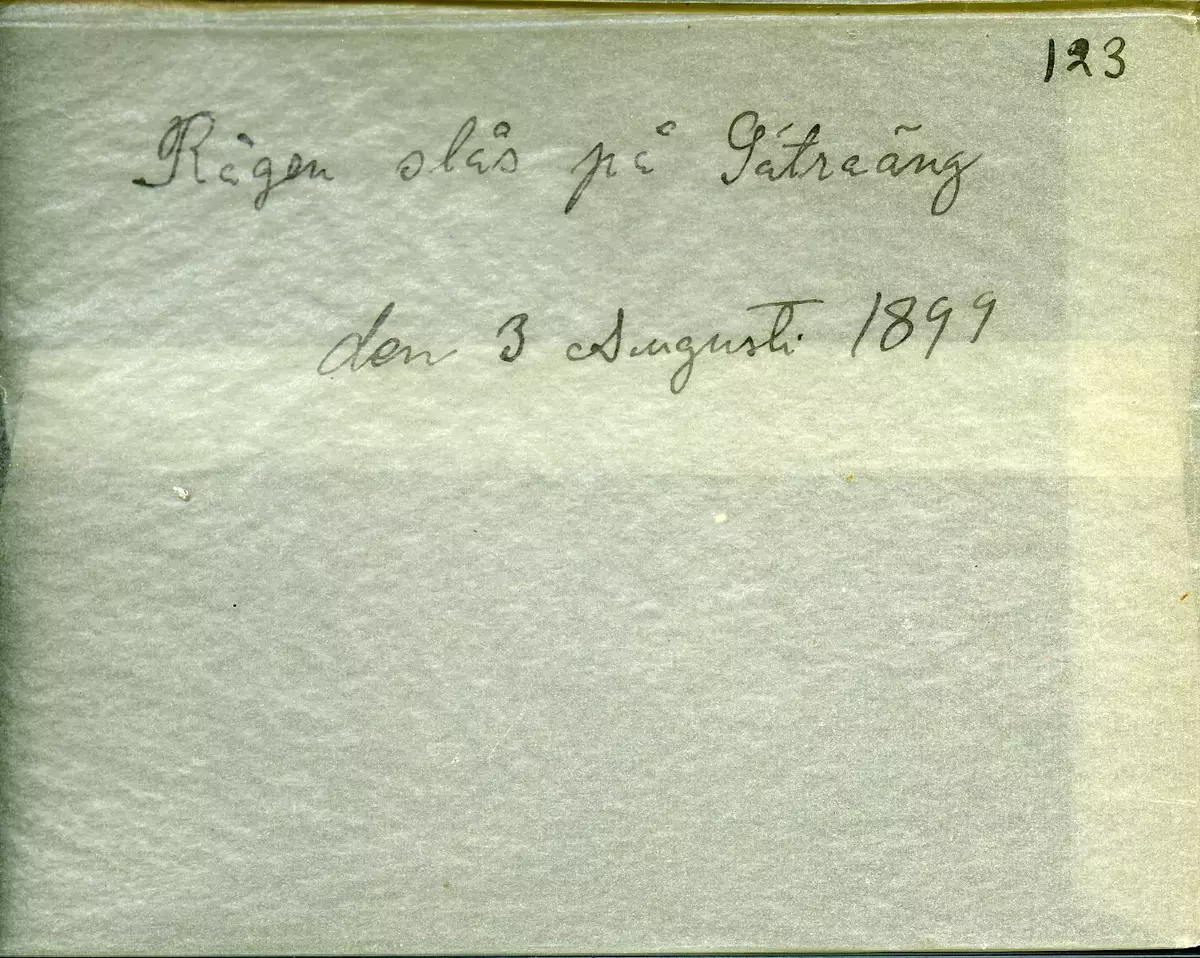 123
Rågen slås på Sätraäng
den 3 Augusti 1899